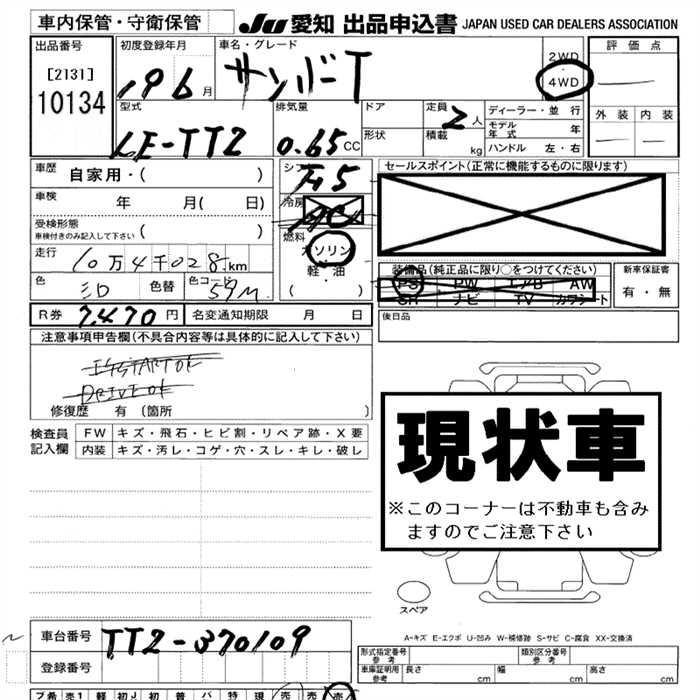 車内保管・守衛保管
JU 愛知 出品申込書 JAPAN USED CAR DEALERS ASSOCIATION
出品番号 [2131] 10134
初度登録年月 19 6 月
車名・グレード サンバーT
2WD ・ 4WD
評価点
外装 内装
型式 LE-TT2
排気量 0.65 CC
ドア
形状
定員 2 人
積載 kg
ディーラー・並行
モデル年式 年
ハンドル 左・右
車歴 自家用・( )
車検 年 月( 日)
受検形態
車検付きのみ記入して下さい ( )
走行 10万4千028 km
色 シロ 色替 色コード 59M
シフト F5
冷房 AC
燃料 ガソリン
軽・油
( )
セールスポイント(正常に機能するものに限ります)
装備品(純正品に限り○をつけてください)
PS PW エアB AW
SR ナビ TV カワシート
新車保証書
有・無
R券 7,470 円 名変通知期限 月 日
後日品
注意事項申告欄(不具合内容等は具体的に記入して下さい)
DRIVE OK
修復歴 有 (箇所 )
検査員記入欄
FW キズ・飛石・ヒビ割・リペア跡・X要
内装 キズ・汚レ・コゲ・穴・スレ・キレ・破レ
現状車
※このコーナーは不動車も含み
ますのでご注意下さい
スペア
A-キズ E-エクボ U-凹み W-補修跡 S-サビ C-腐食 XX-交換済
車台番号 TT2-370109
登録番号
形式指定番号 参考 類別区分番号 参考
車庫証明用 参考 長さ cm 幅 cm 高さ cm